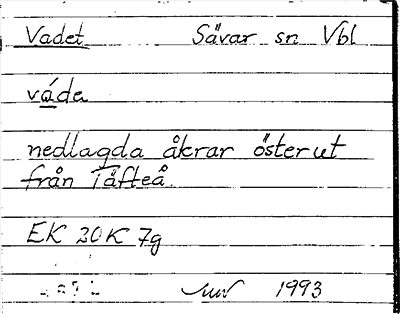 Vadet Sävar sn Vbl
váde
nedlagda åkrar österut
från Täfteå.
EK 20K 7g
1993